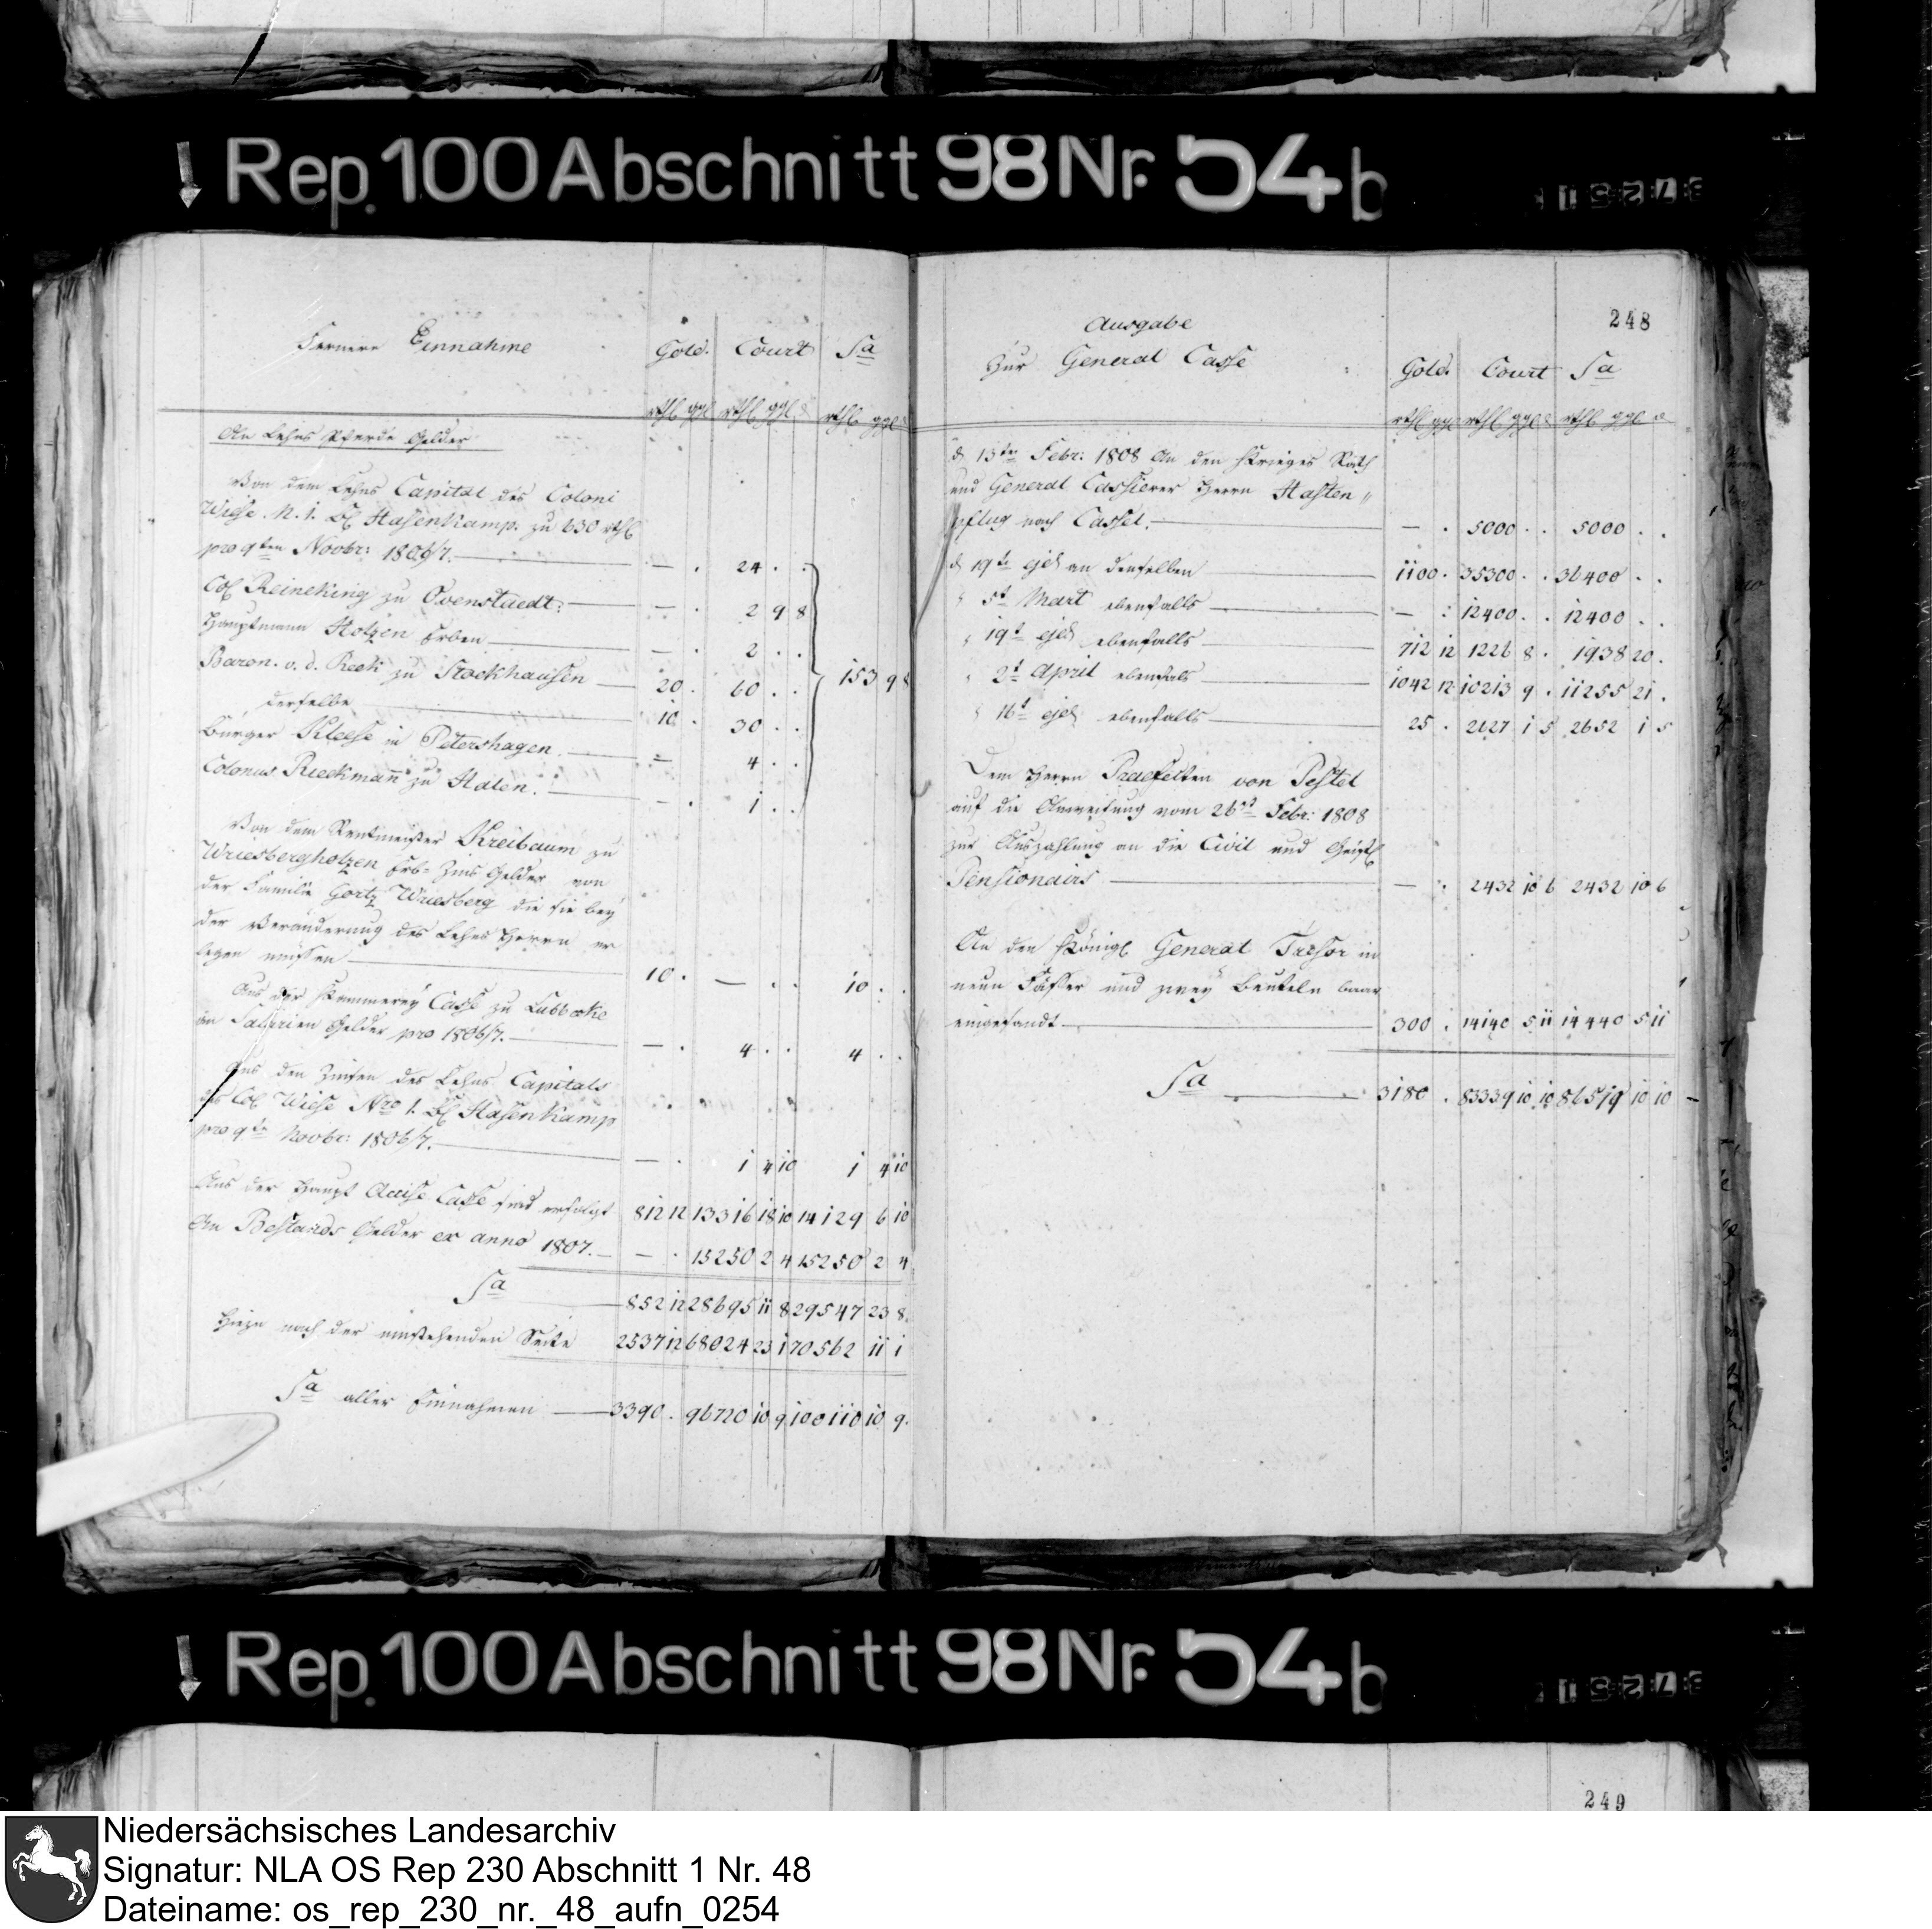 Rep. 100 Abschnitt 98 Nr. 54 b
Fernere Einnahme Gold. Court Sa
rthl ggl rthl ggl d rthl ggl d
An Lehns Pferde Gelder
Von dem Lehns Capital des Coloni
Wiese N. 1. Bs Hasenkamp zu 630 rthl
pro 9ten Novbr: 1806/7. — . 24 . .
Col Reineking zu Ovenstaedt: — . 2 9 8
Hauptmann Hotzen Erben — . 2 . .
Baron v. d. Reck zu Stockhausen 20 . 60 . . 153 9 8
derselbe 10 . 30 . .
Bürger Kleese in Petershagen. — 4 . .
Colonus Rieckmann zu Halen. — . 1 . .
Von dem Rentmeister Kreibaum zu
Wriesbergholzen Erb-Zins Gelder von
der Familie Gortz Wriesberg die sie bey
der Veränderung des Lehns Herrn er
legen müssen 10 . — . . 10 . .
Aus der Kämmerey Casse zu Lübbecke
an Salarien Gelder pro 1806/7. — . 4 . . 4 . .
Aus den Zinsen des Lehns Capitals
des Col Wiese Nro 1. Bs Hasenkamp
pro 9ten Novbr: 1806/7. — . 1 4 10 1 4 10
Aus der Haupt Accise Casse sind erfolgt 812 12 13316 18 10 14129 6 10
An Bestands Gelder ex anno 1807. — . 15250 2 4 15250 2 4
Sa 852 12 28695 11 8 29547 23 8.
Hiezu nach der umstehenden Seite 2537 12 68024 23 1 70562 11 1
Sa aller Einnahmen 3390 . 96720 10 9 100110 10 9.
248
Ausgabe
Zur General Casse Gold. Court Sa
rthl ggl rthl ggl d rthl ggl d
d 13ten Febr: 1808 An den Krieges Rath
und General Cassierer Herrn Hasten"
pflug nach Cassel. — . 5000 . . 5000 . .
d 19te ejd an denselben 1100 . 35300 . . 36400 . .
" 5t Mart ebenfalls — : 12400 . . 12400 . .
" 19t ejd ebenfalls 712 12 1226 8 . 1938 20 .
" 2t April ebenfals 1042 12 10213 9 . 11255 21 .
" 16t ejd ebenfalls 25 . 2627 1 5 2652 1 5
Dem Herrn Praefecten von Pestel
auf die Anweisung vom 26t Febr: 1808
zur Auszahlung an die Civil und Geistl
Pensionairs — . 2432 10 6 2432 10 6
An den Königl General Tresor in
neun Fässer und zwey Beuteln baar
eingesandt 300 . 14140 5 11 14440 5 11
Sa 3180 . 83339 10 10 86519 10 10
Rep. 100 Abschnitt 98 Nr. 54 b
249
Niedersächsisches Landesarchiv
Signatur: NLA OS Rep 230 Abschnitt 1 Nr. 48
Dateiname: os_rep_230_nr._48_aufn_0254